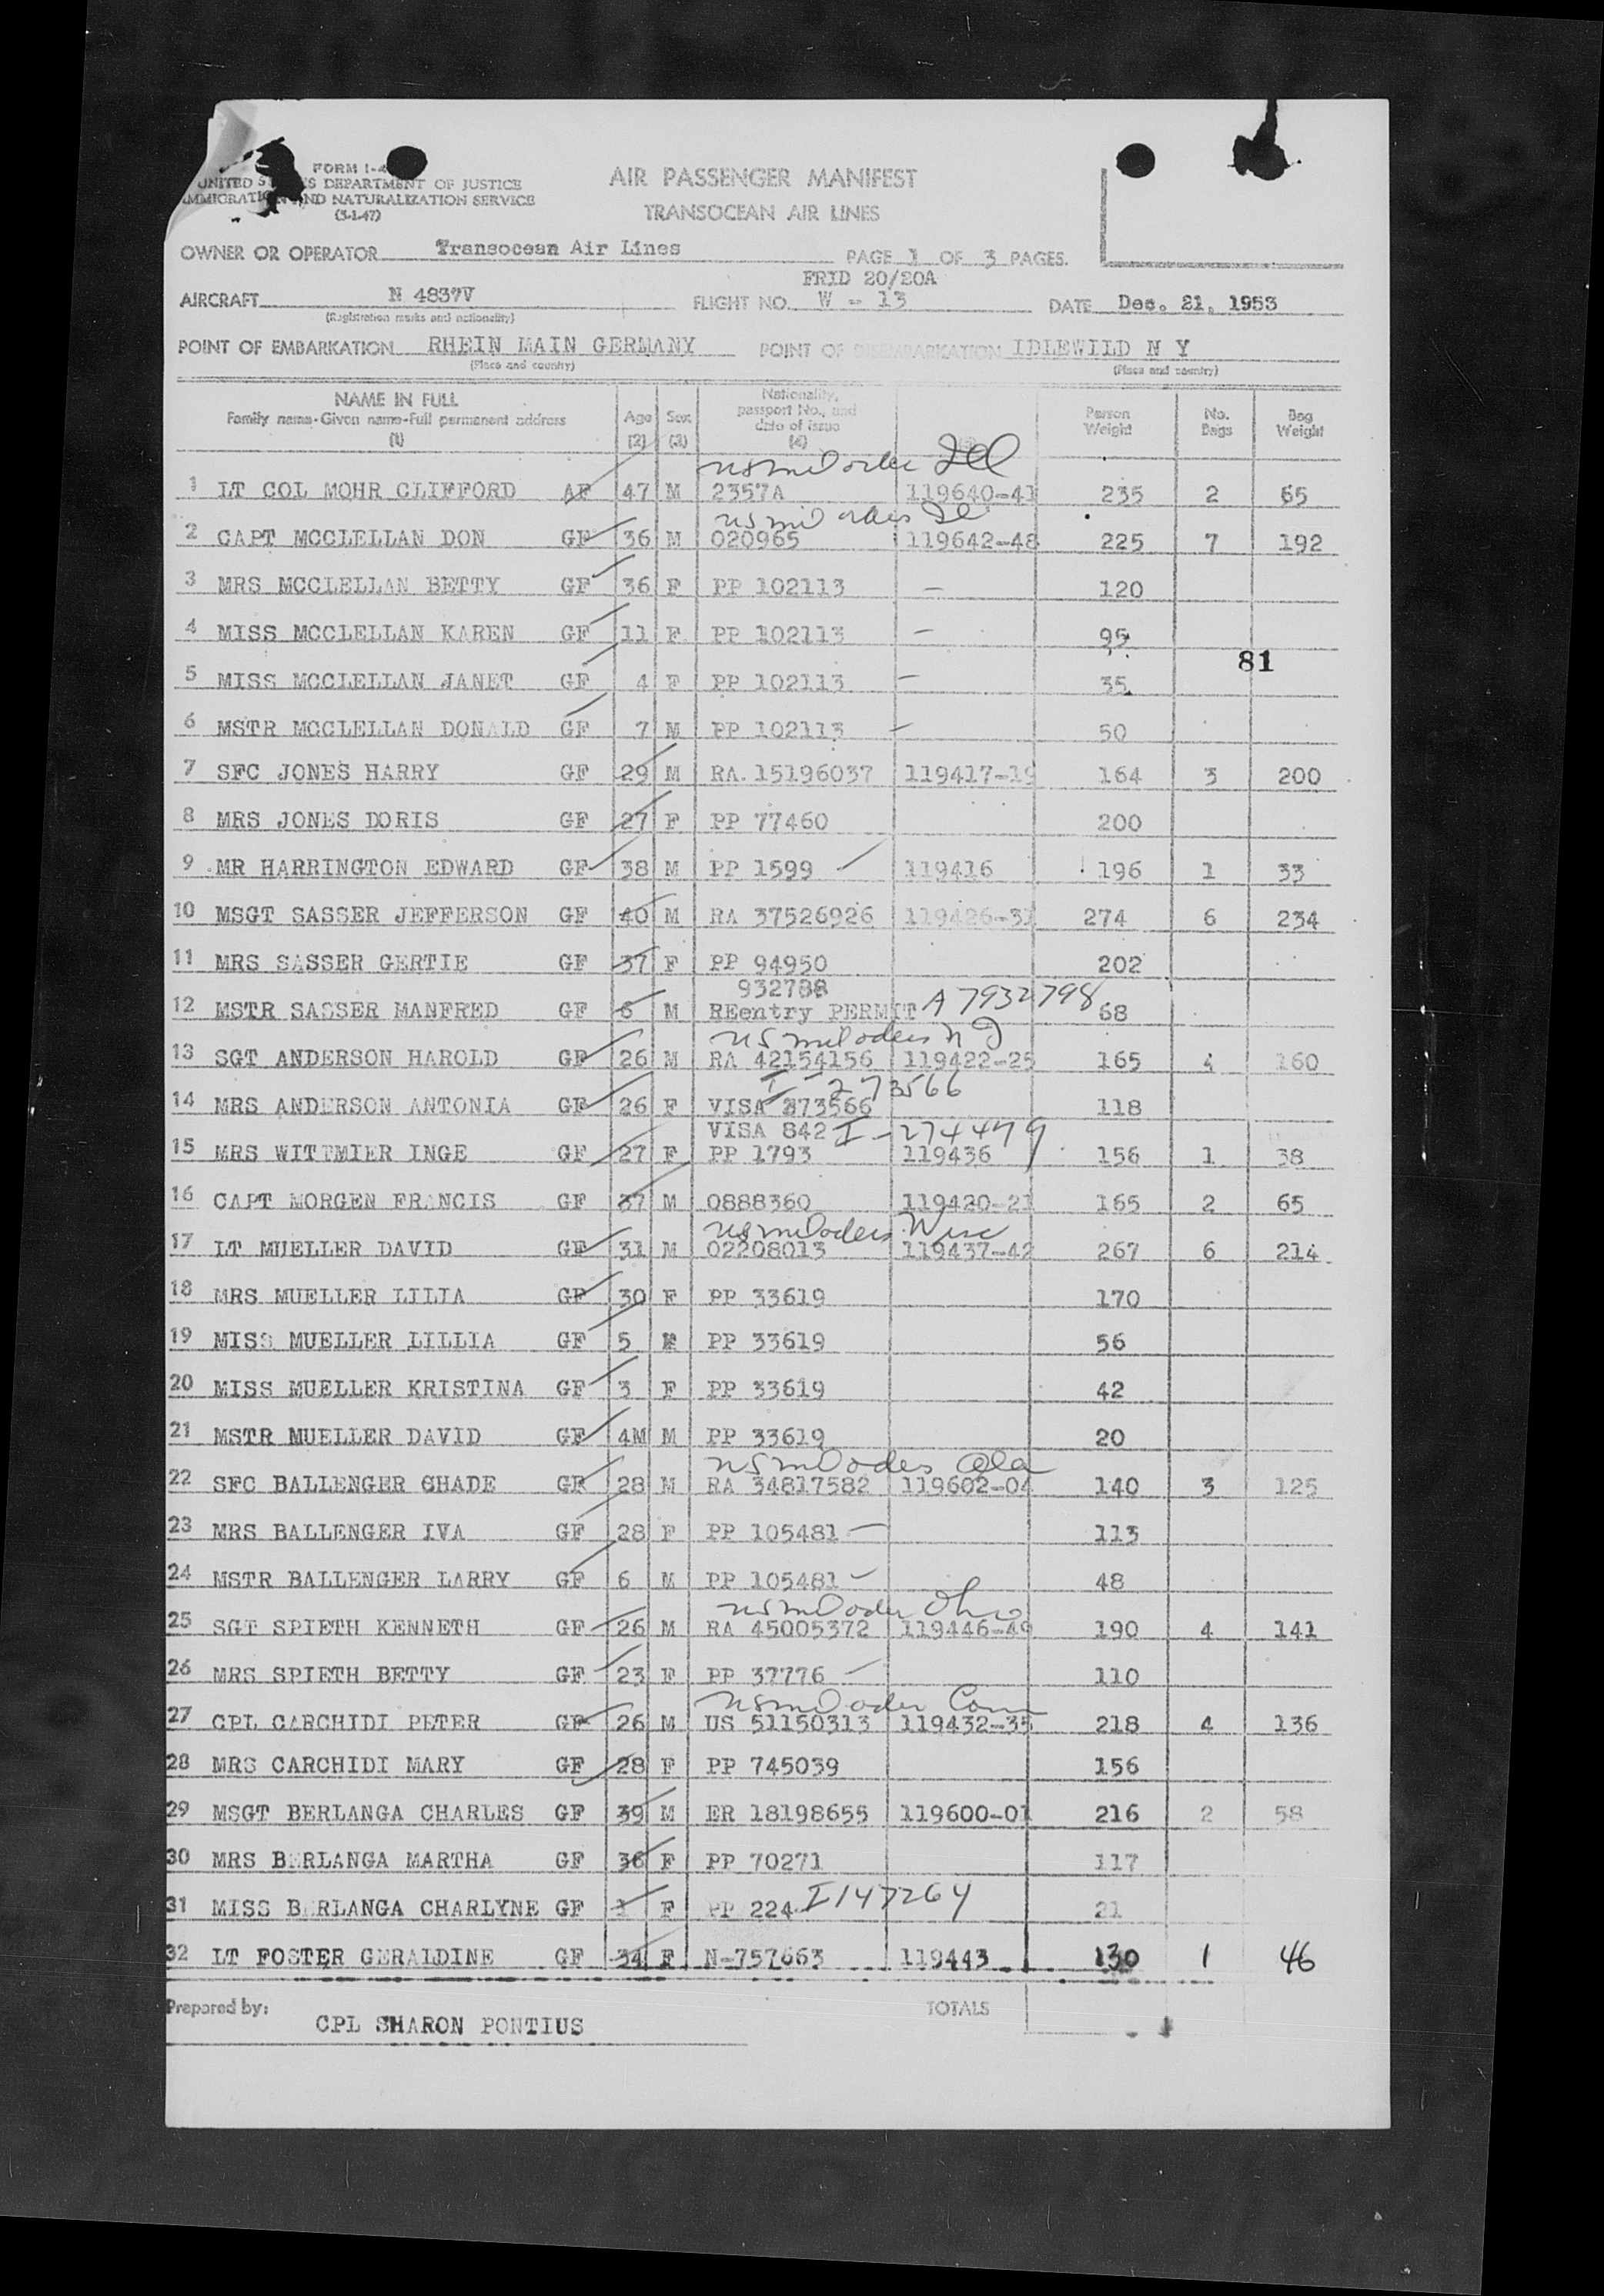 FORM I-4
UNITED S S DEPARTMENT OF JUSTICE
IMMIGRATION AND NATURALIZATION SERVICE
(3-1-47)
AIR PASSENGER MANIFEST
TRANSOCEAN AIR LINES
OWNER OR OPERATOR Transocean Air Lines PAGE 1 OF 3 PAGES.
FRID 20/20A
AIRCRAFT N 4837V FLIGHT NO. W - 13 DATE Dec. 21, 1953
(Registration marks and nationality)
POINT OF EMBARKATION RHEIN MAIN GERMANY POINT OF DISEMBARKATION IDLEWILD N Y
(Place and country) (Place and country)
NAME IN FULL
Family name-Given name-Full permanent address
(1)
Age
(2)
Sex
(3)
Nationality,
passport No., and
date of issue
(4)
Person
Weight
No.
Bags
Bag
Weight
us mil order Ill
1 LT COL MOHR CLIFFORD AF 47 M 2357A 119640-41 235 2 65
us mil orders Il
2 CAPT MCCLELLAN DON GF 36 M 020965 119642-48 225 7 192
3 MRS MCCLELLAN BETTY GF 36 F PP 102113 — 120
4 MISS MCCLELLAN KAREN GF 11 F PP 102113 — 95
81
5 MISS MCCLELLAN JANET GF 4 F PP 102113 — 35
6 MSTR MCCLELLAN DONALD GF 7 M PP 102113 — 50
7 SFC JONES HARRY GF 29 M RA. 15196037 119417-19 164 3 200
8 MRS JONES DORIS GF 27 F PP 77460 200
9 MR HARRINGTON EDWARD GF 38 M PP 1599 119416 196 1 33
10 MSGT SASSER JEFFERSON GF 40 M RA 37526926 119426-31 274 6 234
11 MRS SASSER GERTIE GF 37 F PP 94950 202
932788
12 MSTR SASSER MANFRED GF 6 M REentry PERMIT A 7932798 68
us mil orders N J
13 SGT ANDERSON HAROLD GF 26 M RA 42154156 119422-25 165 4 160
I-273566
14 MRS ANDERSON ANTONIA GF 26 F VISA 273566 118
VISA 842 I-274479
15 MRS WITTMIER INGE GF 27 F PP 1793 119436 156 1 38
16 CAPT MORGEN FRANCIS GF 37 M 0888360 119420-21 165 2 65
us mil orders Wisc
17 LT MUELLER DAVID GF 31 M 02208013 119437-42 267 6 214
18 MRS MUELLER LILIA GF 30 F PP 33619 170
19 MISS MUELLER LILLIA GF 5 F PP 33619 56
20 MISS MUELLER KRISTINA GF 3 F PP 33619 42
21 MSTR MUELLER DAVID GF 4M M PP 33619 20
us mil orders Ala
22 SFC BALLENGER SHADE GF 28 M RA 34817582 119602-04 140 3 125
23 MRS BALLENGER IVA GF 28 F PP 105481 — 113
24 MSTR BALLENGER LARRY GF 6 M PP 105481 48
us mil order Ohio
25 SGT SPIETH KENNETH GF 26 M RA 45005372 119446-49 190 4 141
26 MRS SPIETH BETTY GF 23 F PP 37776 110
us mil order Conn
27 CPL CARCHIDI PETER GF 26 M US 51150313 119432-35 218 4 136
28 MRS CARCHIDI MARY GF 28 F PP 745039 156
29 MSGT BERLANGA CHARLES GF 39 M ER 18198655 119600-01 216 2 58
30 MRS BERLANGA MARTHA GF 36 F PP 70271 117
31 MISS BERLANGA CHARLYNE GF 1 F PP 224 I147264 21
32 LT FOSTER GERALDINE GF 34 F N-757663 119443 130 1 46
Prepared by: CPL SHARON PONTIUS TOTALS